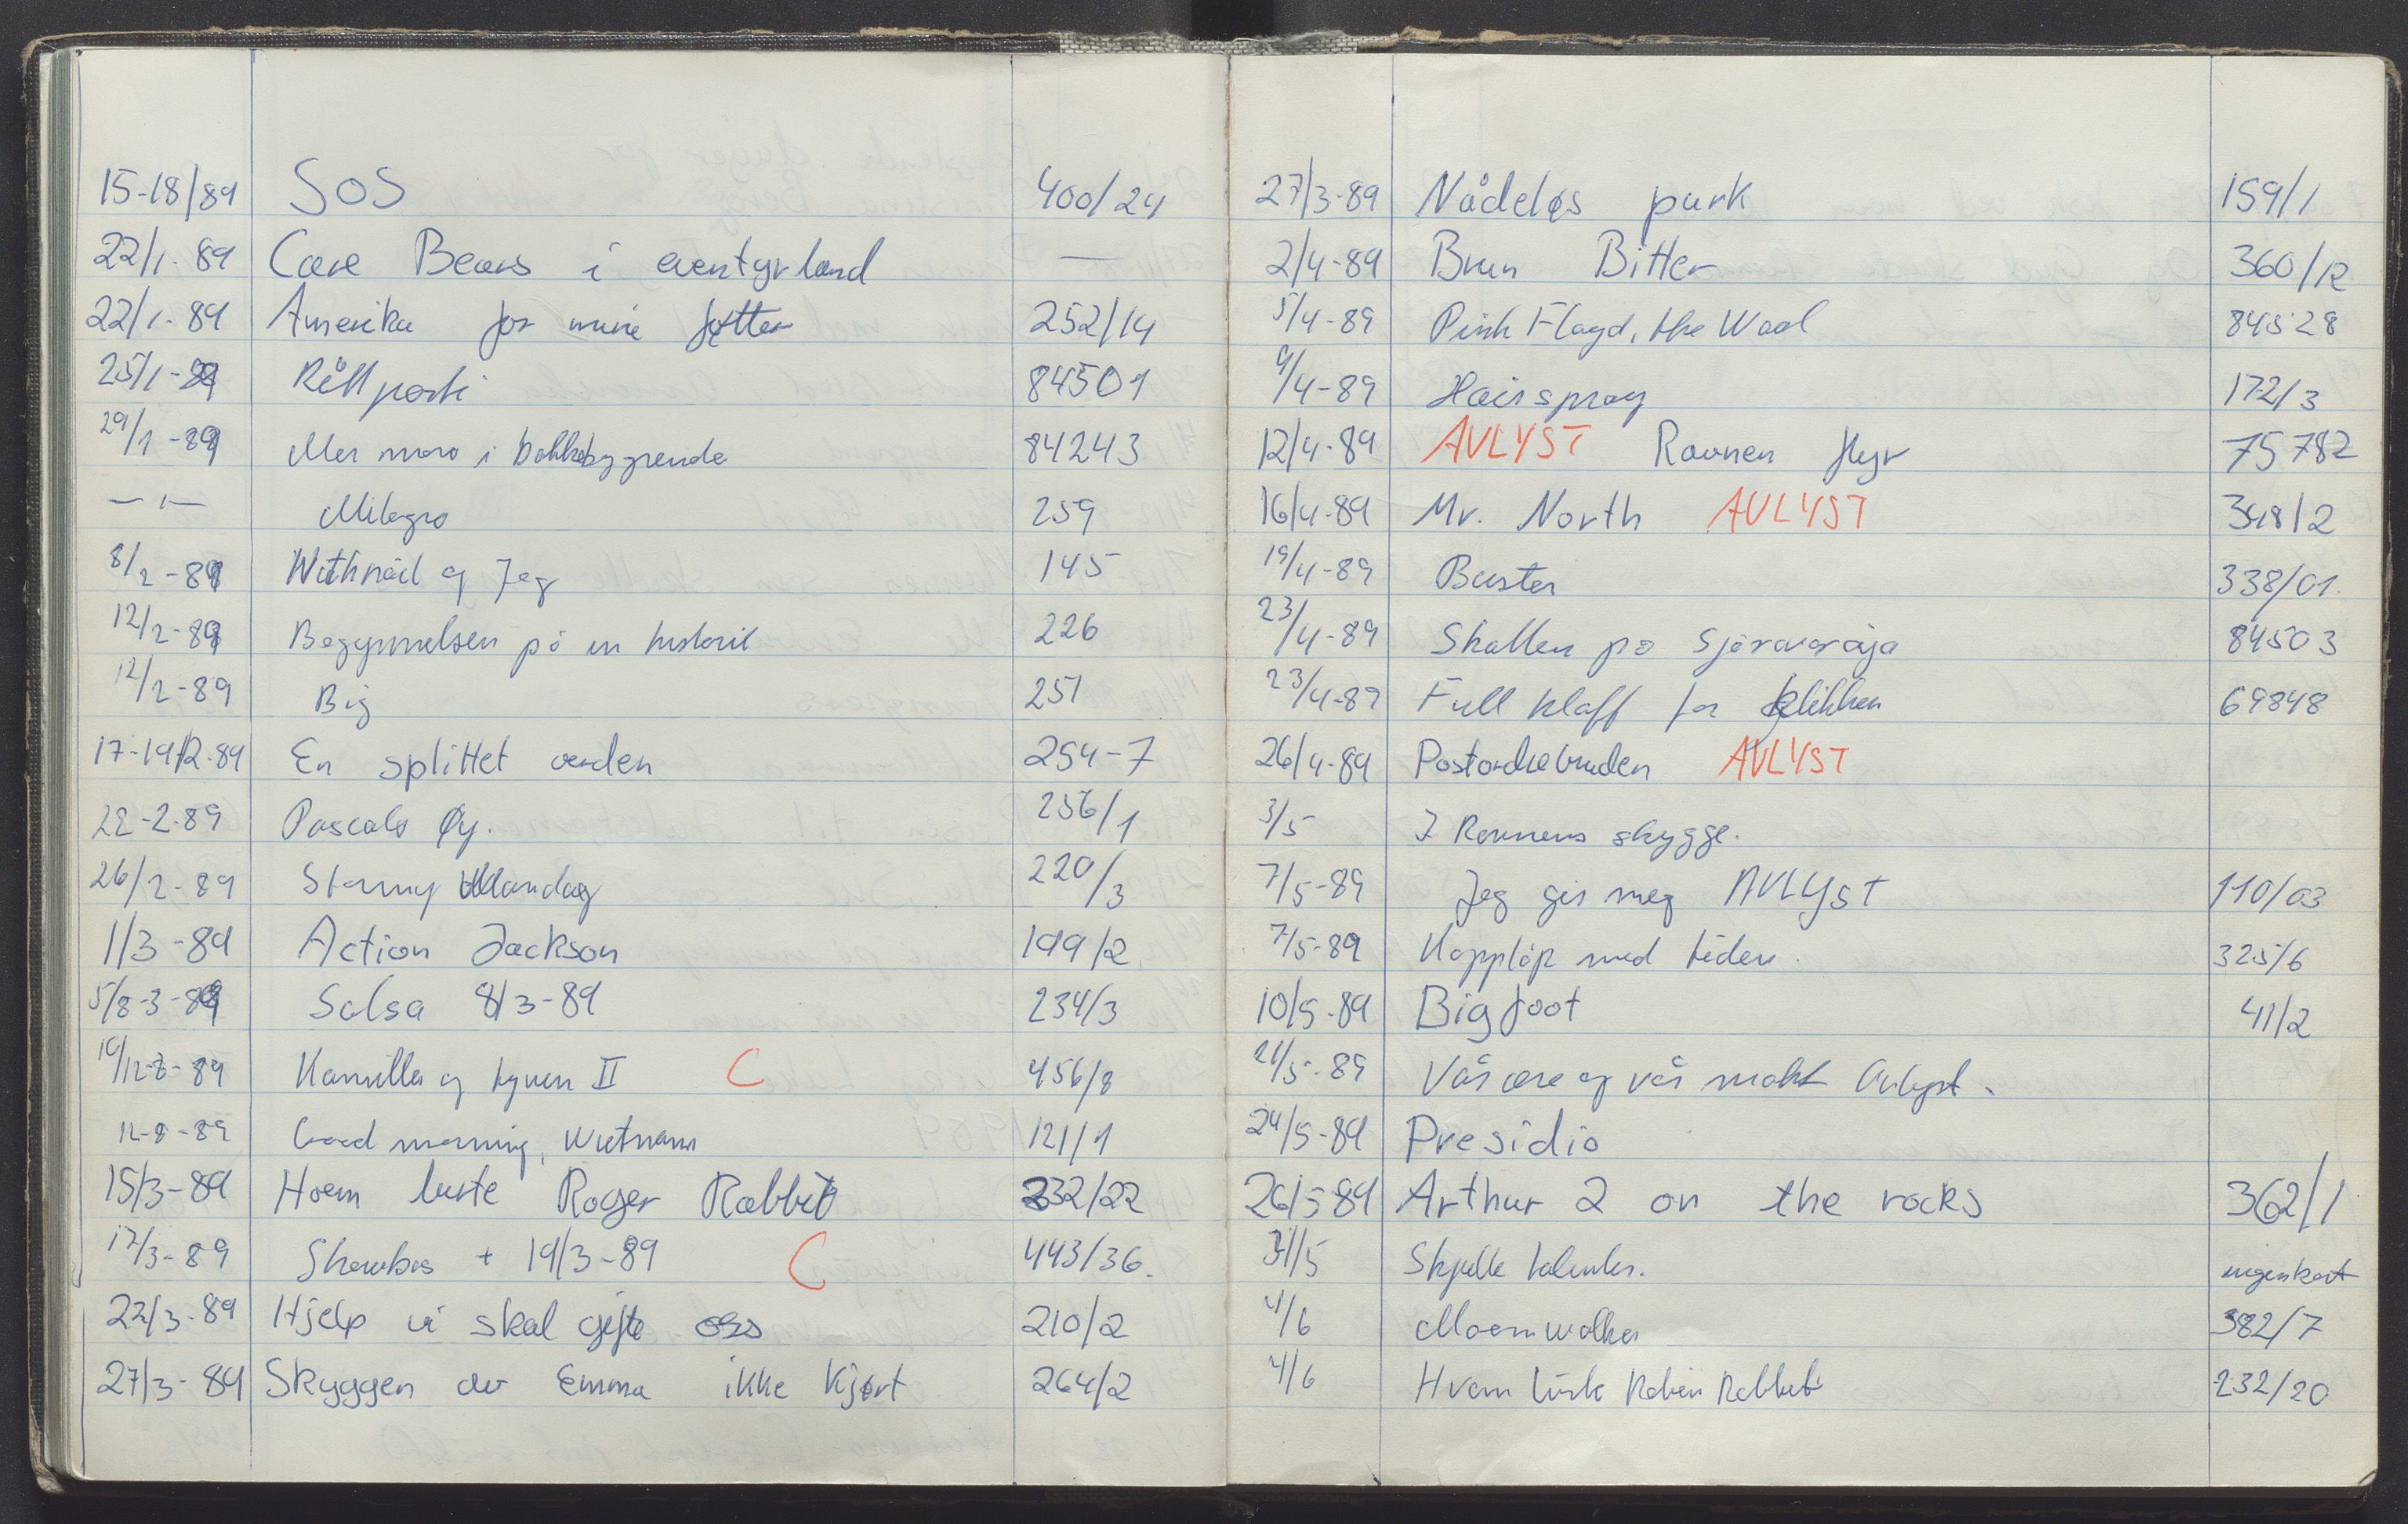 15-18/89 SOS 400/24
22/1-89 Care Bears i eventyrland —
22/1-89 Amerika for mine føtter 252/14
25/1-89 Rått parti 84501
29/1-89 Mer moro i bakkebygrende 84243
— " — Milagro 259
8/2-89 Withnail og Jeg 145
12/2-89 Begynnelsen på en historie 226
12/2-89 Big 251
17-19/2-89 En splittet verden 254-7
22-2-89 Pascals Øy. 256/1
26/2-89 Stormy Mandag 220/3
1/3-89 Action Jackson 199/2
5/8-3-89 Salsa 8/3-89 234/3
10/12-3-89 Kamilla og tyven II C 456/8
12-8-89 Good morning, Wietnam 121/1
15/3-89 Hvem lurte Roger Rabbit 232/22
17/3-89 Showbas + 19/3-89 C 443/36.
22/3-89 Hjelp vi skal gifte oss 210/2
27/3-89 Skyggen av Emma ikke kjørt 264/2
27/3-89 Nådeløs purk 159/1
2/4-89 Brun Bitter 360/12
5/4-89 Pink Floyd, the Waal 84528
9/4-89 Hairspray 172/3
12/4-89 AVLYST Ravnen flyr 75782
16/4-89 Mr. North AVLYST 348/2
19/4-89 Buster 338/01.
23/4-89 Skatten på Sjørøverøya 84503
23/4-89 Full klaff for blikken 69848
26/4-89 Postordrebruden AVLYST
3/5 I Ravnens skygge.
7/5-89 Jeg gir meg AVLYST 110/03
7/5-89 Kappløp med tiden. 325/6
10/5-89 Bigfoot 41/2
21/5-89 Vår ære og vår makt Avlyst.
24/5-89 Presidio
26/5-89 Arthur 2 on the rocks 362/1
31/5 Skjulte talenter. ingen kort
4/6 Moonwalker 382/7
4/6 Hvem lurte Robin Rabbit 232/20